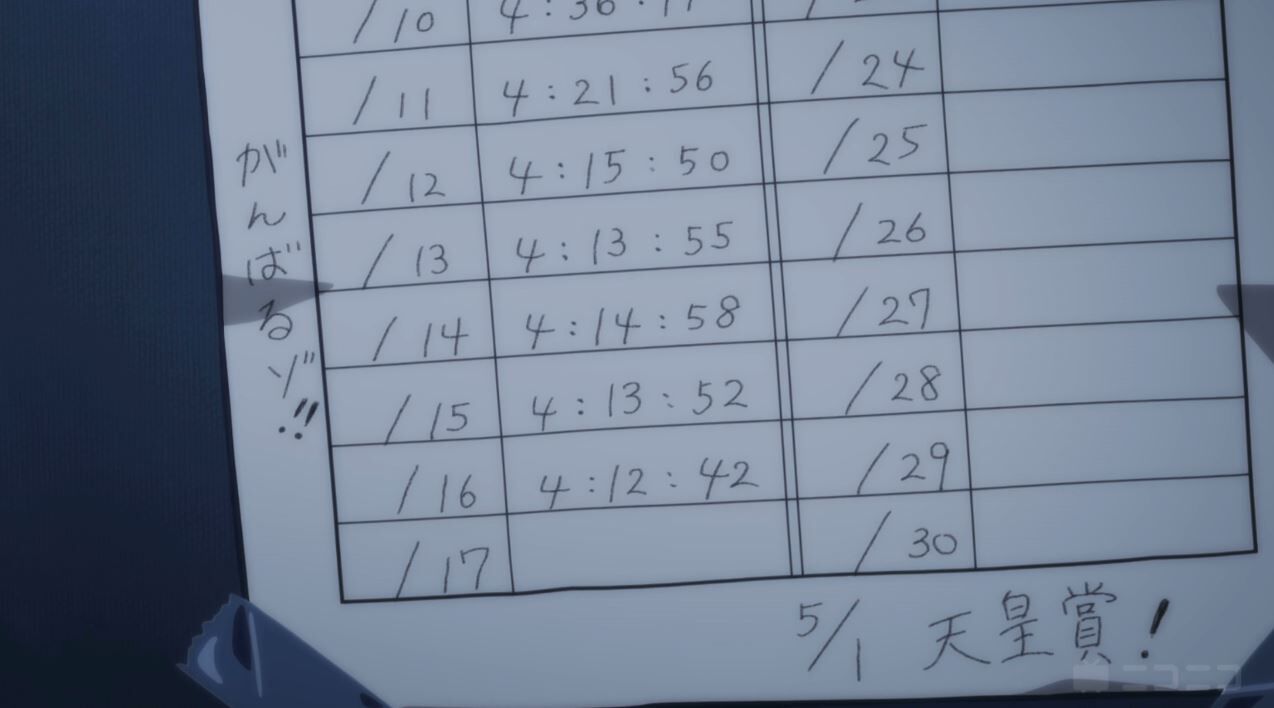 がんばるゾ!!
/10 4:36:11
/11 4:21:56 /24
/12 4:15:50 /25
/13 4:13:55 /26
/14 4:14:58 /27
/15 4:13:52 /28
/16 4:12:42 /29
/17 /30
5/1 天皇賞!
ニコニコ